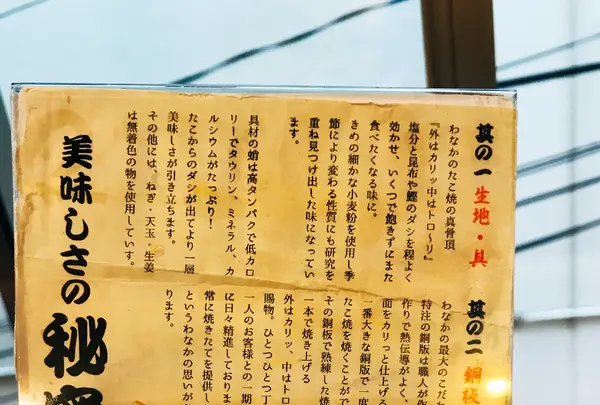 其の一 生地・具
わなかのたこ焼の真骨頂
『外はカリッ中はトロ～リ』
塩分と昆布や鰹のダシを程よく
効かせ、いくつで飽きずにまた
食べたくなる味に。
きめの細かな小麦粉を使用し季
節により変わる性質にも研究を
重ね見つけ出した味になってい
ます。
具材の蛸は高タンパクで低カロ
リーでタウリン、ミネラル、カ
ルシウムがたっぷり！
たこからのダシが出てより一層
美味しさが引き立ちます。
その他には、ねぎ・天玉・生姜
は無着色の物を使用していす。
其の二 銅板
わなかの最大のこだわ
特注の銅版は職人が作
作りで熱伝導がよく、
面をカリっと仕上げる
一番大きな銅版で一度
たこ焼を焼くことがで
その銅板で熟練した焼
一本で焼き上げる
外はカリッ、中はトロ
賜物。ひとつひとつ丁
一人のお客様との一期
に日々精進しておりま
常に焼きたてを提供し
というわなかの思いが
ります。
美味しさの秘密